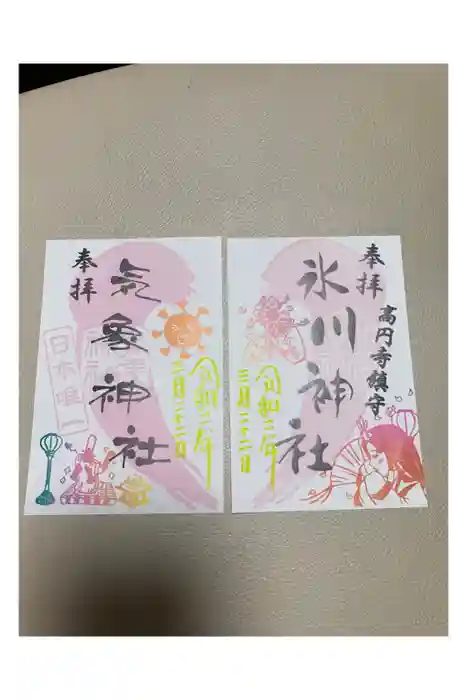 奉拝
氷川神社
高円寺鎮守
令和二年
三月二十二日
奉拝
気象神社
日本唯一
令和二年
三月二十二日